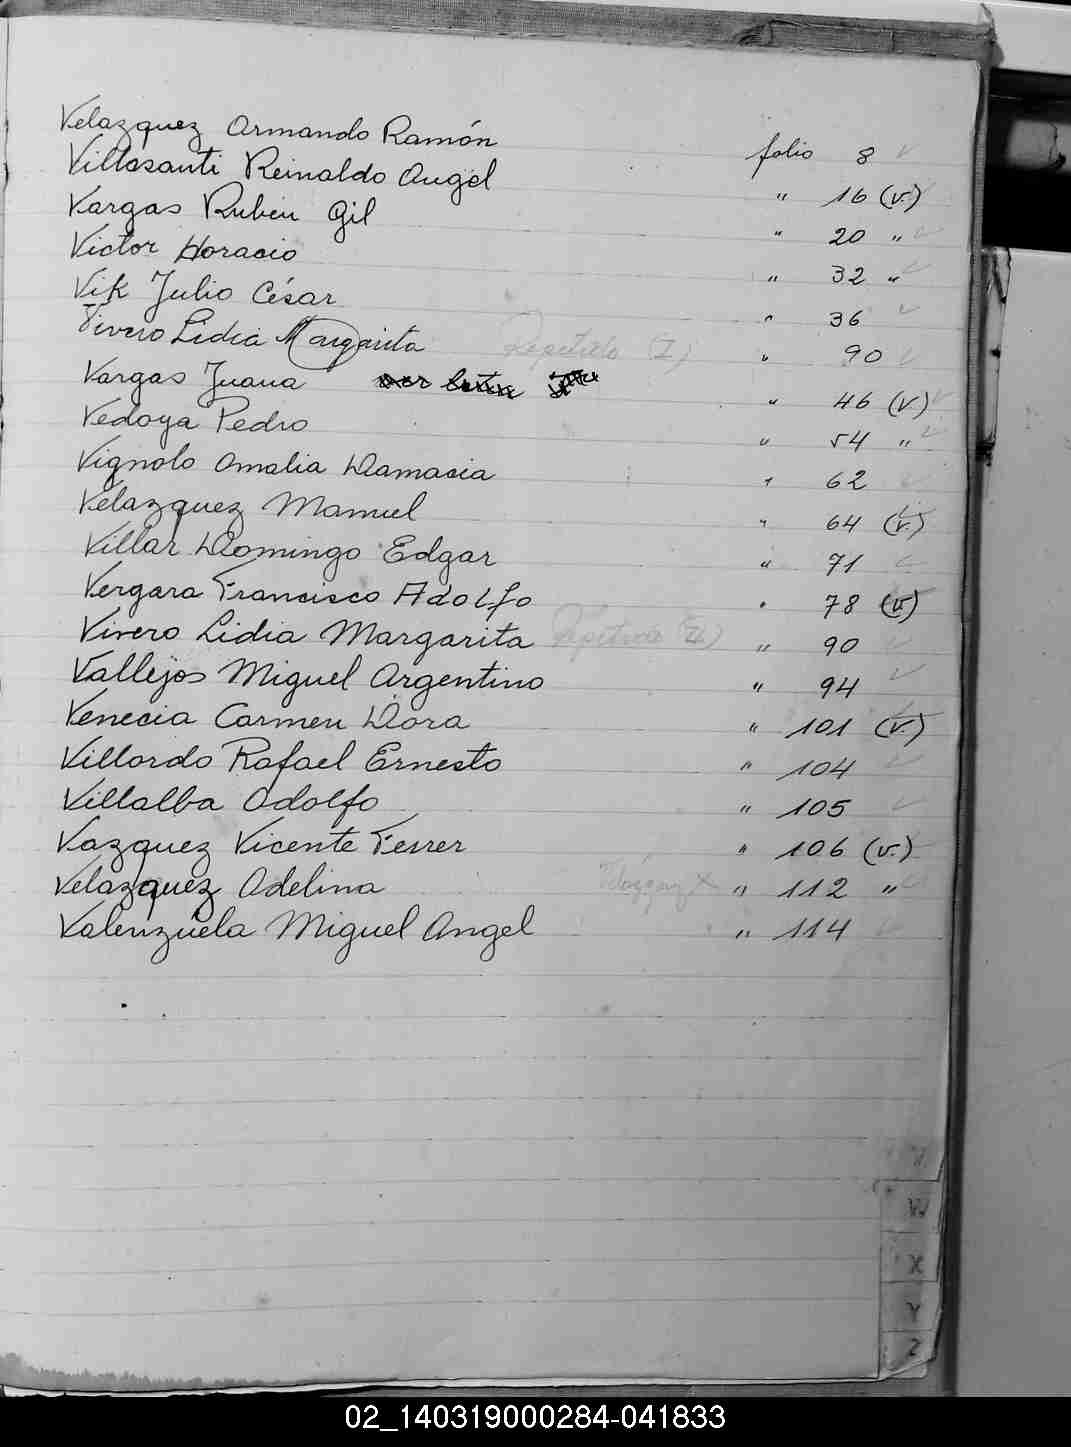 Velazquez Armando Ramón folio 8
Villasanti Reinaldo Angel " 16 (v.)
Vargas Ruben Gil " 20 "
Victor Horacio " 32 "
Vik Julio César " 36
Vivero Lidia Margarita Repetido (Z) " 90
Vargas Juana " 46 (v.)
Vedoya Pedro " 54 "
Vignolo Amalia Damasia " 62
Velazquez Manuel " 64 (v.)
Villar Domingo Edgar " 71
Vergara Francisco Adolfo " 78 (v)
Vivero Lidia Margarita Repetido (Z) " 90
Vallejos Miguel Argentino " 94
Venecia Carmen Dora " 101 (v.)
Villordo Rafael Ernesto " 104
Villalba Adolfo " 105
Vazquez Vicente Ferrer " 106 (v.)
Velazquez Adelina " 112 "
Valenzuela Miguel Angel " 114
V
W
X
Y
Z
02_140319000284-041833